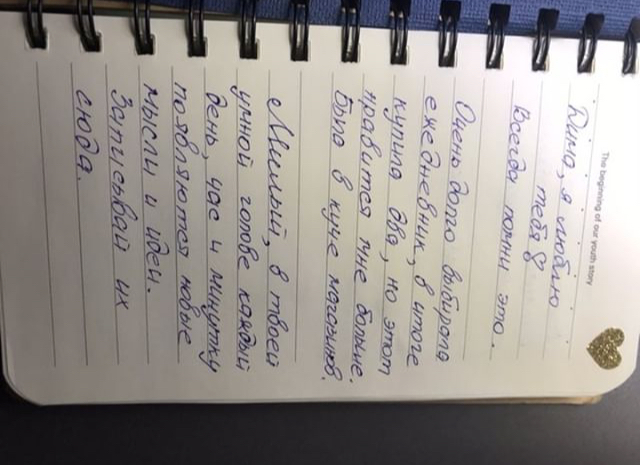 The beginning of our youth story
Дима, я люблю
тебя ♡
Всегда помни это...
Очень долго выбирала
ежедневник, в итоге
купила два, но этот
нравится мне больше.
Была в куче магазинов.
Милый, в твоей
умной голове каждый
день, час и минутку
появляются новые
мысли и идеи.
Записывай их
сюда.